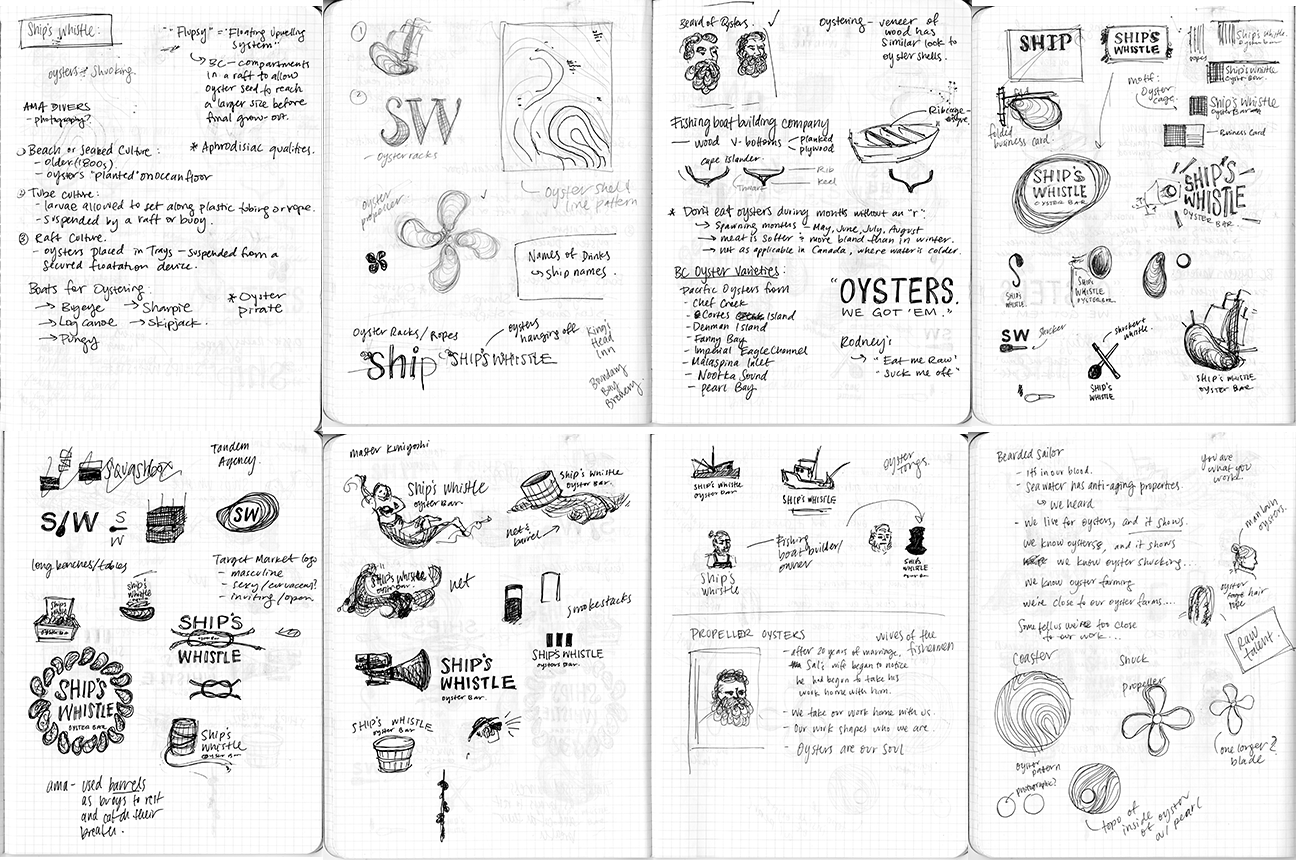 Ship's Whistle:
oysters + shucking.
AMA DIVERS
- photography?
① Beach or Seabed Culture:
- older (1800s)
- oysters "planted" on ocean floor
② Tube culture:
- larvae allowed to set along plastic tubing or rope.
- suspended by a raft or buoy.
③ Raft Culture.
- oysters placed in Trays - suspended from a
secured floatation device.
Boats for Oystering:
→ Bugeye → Sharpie
→ Log Canoe → Skipjack.
→ Pungy
"Flupsy" = "Floating Upwelling
System"
↳ BC - compartments
in a raft to allow
oyster seed to reach
a larger size before
final grow-out.
* Aphrodisiac qualities.
* Oyster
pirate
①
②
SW
- oyster racks
oyster
propeller
oyster shell &
line pattern
Names of Drinks
↳ ship names.
Oyster Racks/Ropes
oysters
hanging off
ship
SHIP'S WHISTLE
King's
Head
Inn
Boundary
Bay
Brewery
Beard of Oysters
oystering - veneer of
wood has
similar look to
oyster shells.
Fishing boat building company
- wood v-bottoms < planked
plywood
cape islander
Rib
Keel
* Don't eat oysters during months without an "r".
→ Spawning months - May, June, July, August
→ meat is softer & more bland than in winter.
→ not as applicable in Canada, where water is colder.
BC Oyster Varieties:
Pacific Oysters from
- Chef Creek
- Cortes Island
- Denman Island
- Fanny Bay
- Imperial Eagle Channel
- Malaspina Inlet
- Nootka Sound
- pearl Bay
"OYSTERS.
WE GOT 'EM."
Rodney's
→ "Eat me Raw"
"Suck me off"
SHIP
SHIP'S
WHISTLE
Ship's Whistle.
Oyster Bar
ropes
motif:
Oyster
cage.
Ship's Whistle
Oyster Bar.
Ship's Whistle
Oyster Bar
Business Card
folded
business card.
SHIP'S
WHISTLE
OYSTER BAR
SHIP'S
WHISTLE
OYSTER BAR.
SHIP'S
WHISTLE
SHIP'S
WHISTLE
OYSTER BAR.
SW
shucker
shucker +
whistle.
SHIP'S
WHISTLE
SHIP'S WHISTLE
OYSTER BAR
Squashbox
Tandem
Agency.
S/W
S
W
SW
long benches/tables
Ship's
whistle
oyster bar
Ship's
Whistle
Target Market logo
- masculine
- sexy/curvaceous?
- inviting/open
SHIP'S
WHISTLE
SHIP'S
WHISTLE
OYSTER BAR
Ship's
Whistle
oyster bar
ama - used barrels
as buoys to rest
and catch their
breath.
master Kuniyoshi
Ship's Whistle
oyster bar.
Ship's Whistle
oyster bar.
net &
barrel
Ship's Whistle
oyster bar.
net
smokestacks
SHIP'S WHISTLE
oysters bar.
SHIP'S
WHISTLE
oyster bar.
SHIP'S WHISTLE
oyster bar.
SHIP'S WHISTLE
oyster bar
SHIP'S WHISTLE
oyster
tongs.
Fishing
boat builder/
owner
SHIP'S
WHISTLE
SHIP'S
WHISTLE
PROPELLER OYSTERS
wives of the
fishermen
- after 20 years of marriage,
Sal's wife began to notice
he had began to take his
work home with him.
- We take our work home with us.
- Our work shapes who we are.
- Oysters are our soul
Bearded Sailor
- It's in our blood.
- Sea water has anti-aging properties.
↳ we heard
- We live for oysters, and it shows.
We know oysters, and it shows
we know oyster shucking...
We know oyster farming
We're close to our oyster farms...
Some tell us we're too close
to our work...
you are
what you
work.
man bun
oysters.
oyster
hair
rope
Raw
Talent.
Coaster
Shuck
propeller
one longer?
blade
oyster
pattern
photographic?
topo of
inside of oyster
w/ pearl